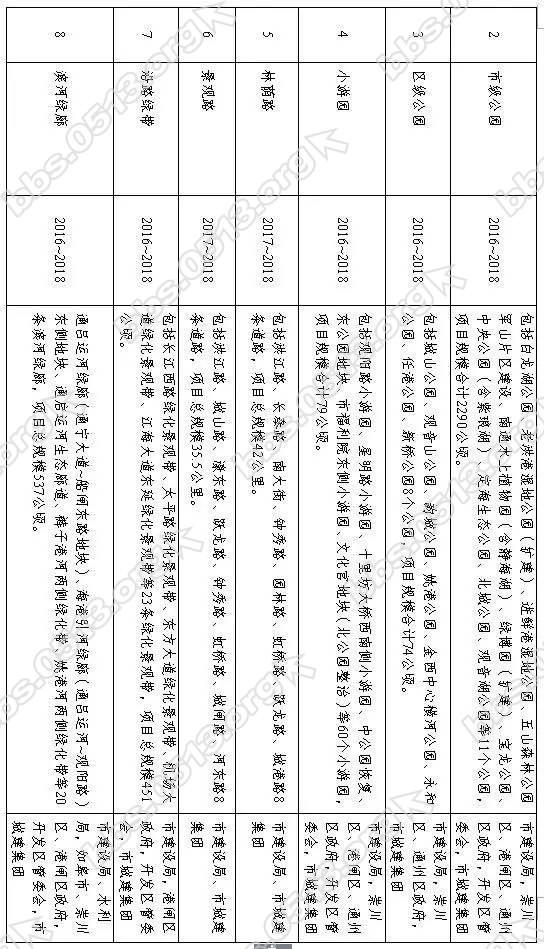 2
市级公园
2016~2018
包括白龙湖公园、老洪港湿地公园(扩建)、进鲜港湿地公园、五山森林公园
军山片区建设、南通水上植物园(含静海湖)、绿博园(扩建)、宝龙公园、
中央公园(含紫琅湖)、滨海生态公园、北城公园、观音湖公园等11个公园,
项目规模合计2290公顷。
市建设局,崇川
区、港闸区、通州
区政府,开发区管
委会,市城建集团
3
区级公园
2016~2018
包括城山公园、观音山公园、新城公园、姚港公园、金西中心横河公园、永和
公园、任港公园、新桥公园8个公园,项目规模合计74公顷。
市建设局,崇川
区、通州区政府,
市城建集团
4
小游园
2016~2018
包括观阳路小游园、星明路小游园、十里坊大桥西南侧小游园、中公园恢复、
东公园地块、市福利院东侧小游园、文化宫地块(北公园整治)等60个小游园,
项目规模合计79公顷。
市建设局,崇川
区、港闸区、通州
区政府,开发区管
委会,市城建集团
5
林荫路
2017~2018
包括洪江路、长泰路、南大街、钟秀路、园林路、虹桥路、跃龙路、城港路8
条道路,项目总规模42公里。
市建设局、市城建
集团
6
景观路
2017~2018
包括洪江路、城山路、濠东路、跃龙路、钟秀路、虹桥路、城闸路、河东路8
条道路,项目总规模35.5公里。
市建设局、市城建
集团
7
沿路绿带
2016~2018
包括长江西路绿化景观带、太平路绿化景观带、东方大道绿化景观带、机场大
道绿化景观带、江海大道东延绿化景观带等23条绿化景观带,项目总规模451
公顷。
市建设局,港闸区
政府,开发区管委
会,市城建集团
8
滨河绿廊
2016~2018
通吕运河绿廊(通宁大道~船闸东路地块)、海港引河绿廊(通吕运河~观阳路)
东侧地块、通启运河生态廊道、裤子港河两侧绿化带、姚港河两侧绿化带等20
条滨河绿廊,项目总规模537公顷。
市建设局、水利
局,如皋市、崇川
区、港闸区政府,
开发区管委会,市
城建集团
bbs.0513.org